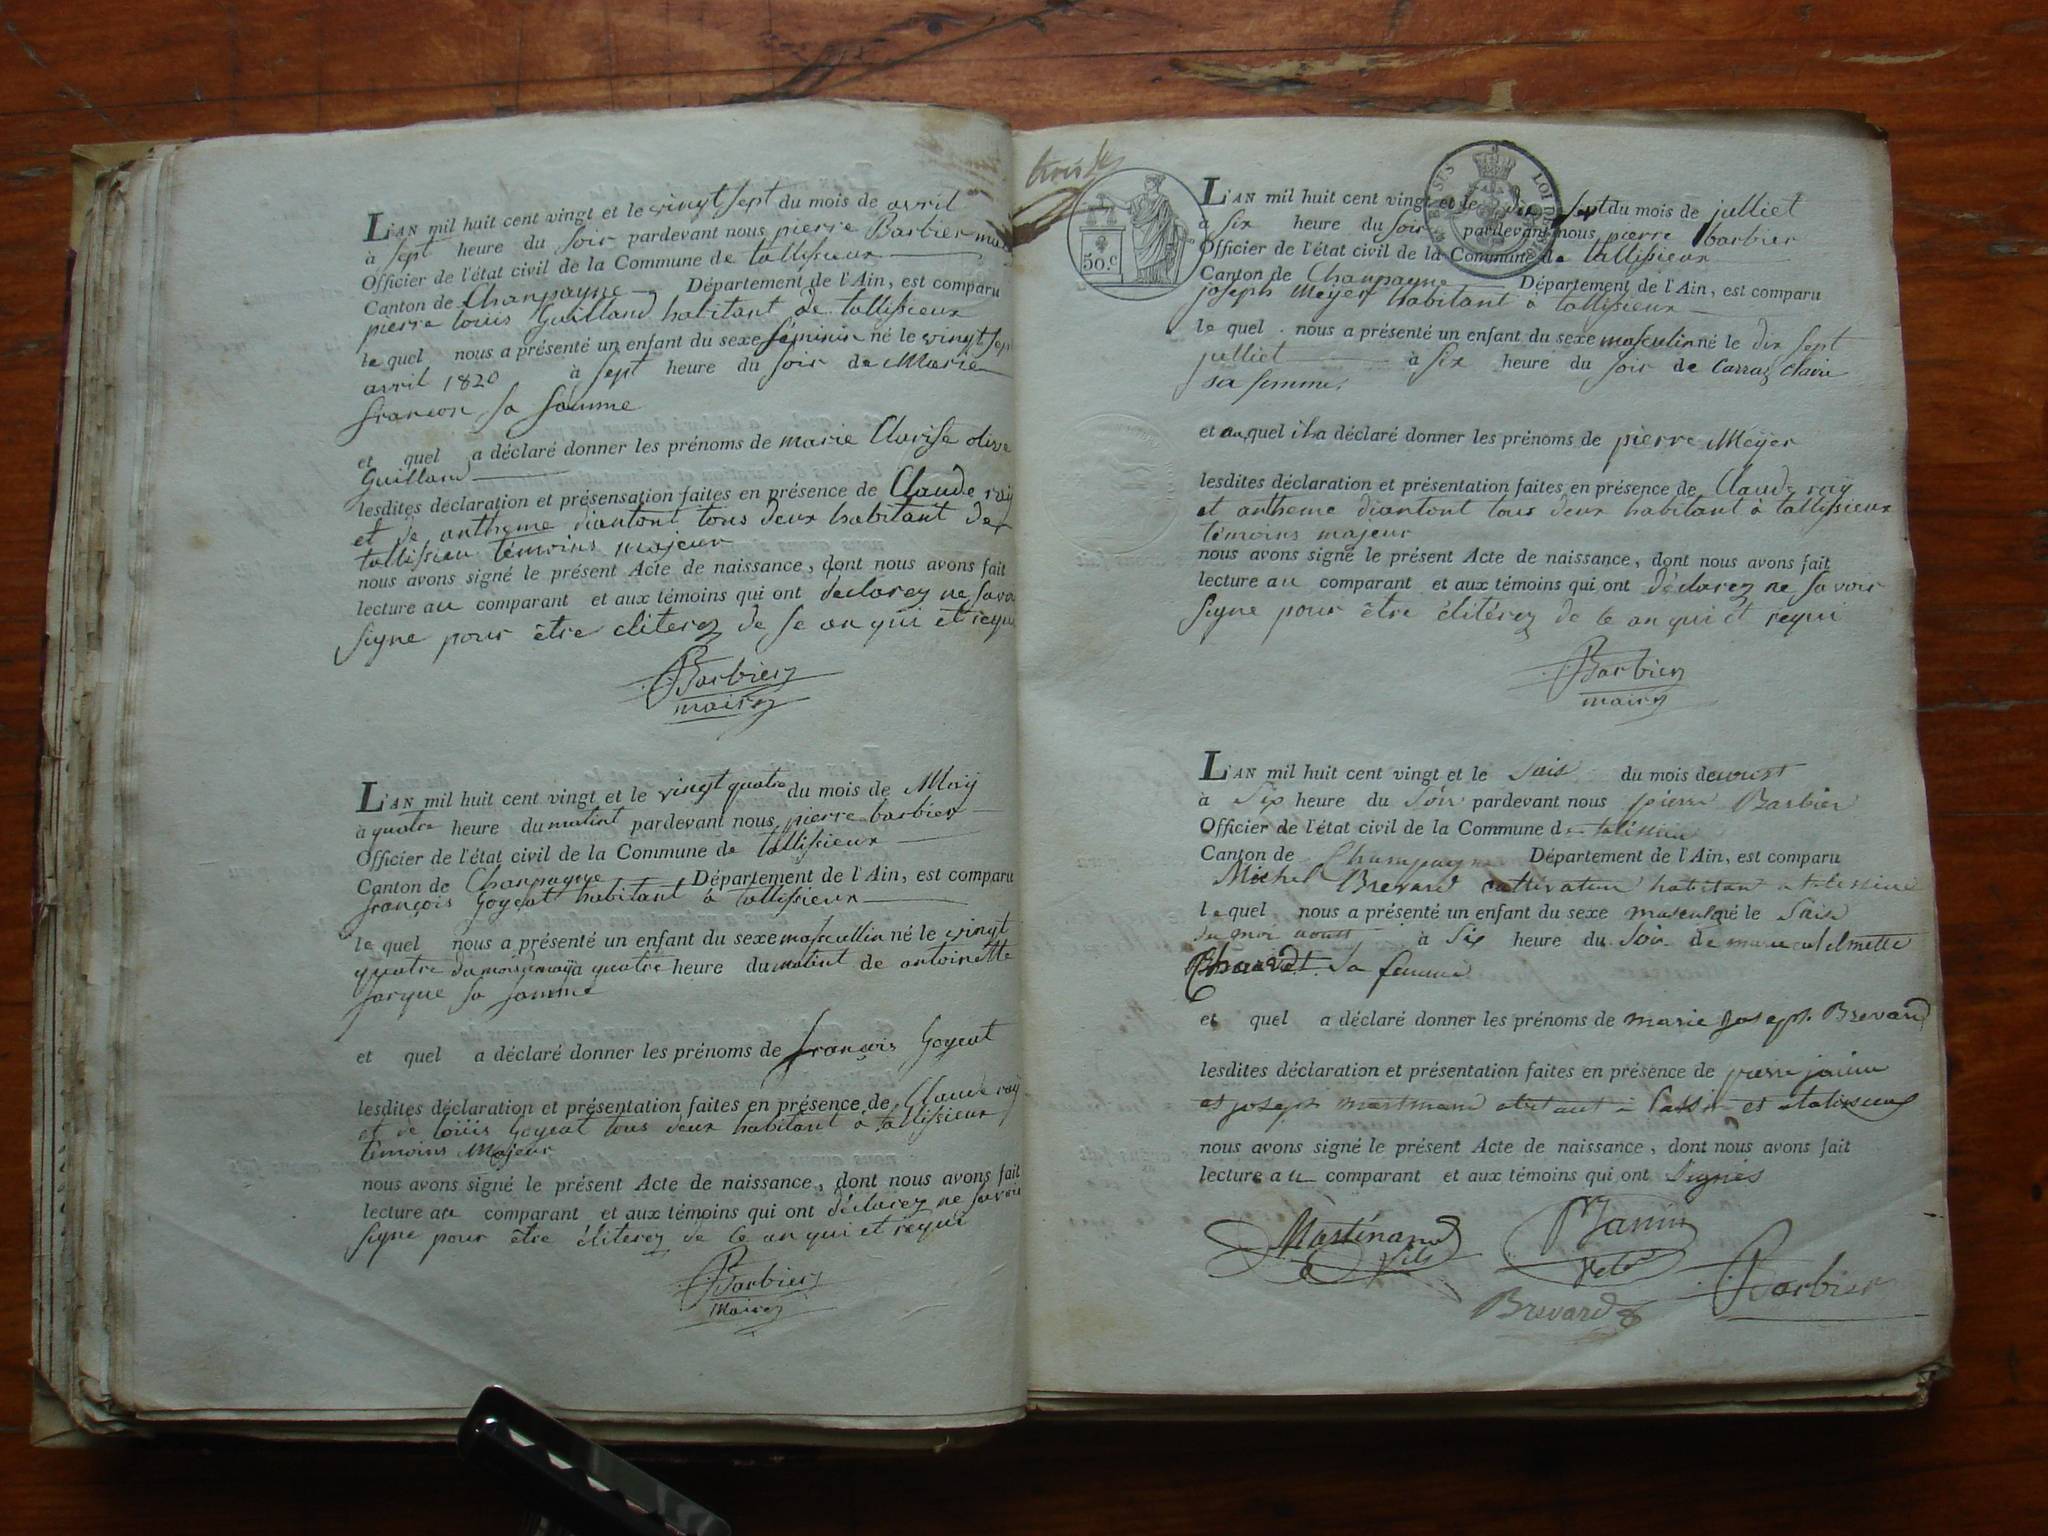 L'AN mil huit cent vingt et le vingt sept du mois de avril
à sept heure du soir pardevant nous pierre Barbier
Officier de l'état civil de la Commune de tallissieux
Canton de Chanpagne Département de l'Ain, est comparu
pierre louis Guilland habitant de tallissieux
le quel nous a présenté un enfant du sexe féminin né le vingt sept
avril 1820 à sept heure du soir de Marie
francon sa famme
et quel a déclaré donner les prénoms de marie Clarise
Guilland
lesdites déclaration et présensation faites en présence de Claude raÿ
et de antheme diantont tous deux habitant de
tallissieu témoins majeur
nous avons signé le présent Acte de naissance, dont nous avons fait
lecture au comparant et aux témoins qui ont déclarez ne savoi
signe pour être eliterez de se an qui et requi
Barbier
maire
L'AN mil huit cent vingt et le vingt quatre du mois de Maÿ
à quatre heure du matint pardevant nous pierre barbier
Officier de l'état civil de la Commune de tallissieux
Canton de Chanpagne Département de l'Ain, est comparu
françois Goyeat habitant à tallissieux
le quel nous a présenté un enfant du sexe mascullin né le vingt
quatre du mois de maÿ à quatre heure du matint de antoinette
Jarque sa famme
et quel a déclaré donner les prénoms de françois Goyeat
lesdites déclaration et présentation faites en présence de Claude raÿ
et de loüis Goyeat tous deux habitant à tallissieux
témoins Majeur
nous avons signé le présent Acte de naissance, dont nous avons fait
lecture au comparant et aux témoins qui ont déclarez ne savoir
signe pour être éliterez de ce an qui et requi
Barbier
Maire
50.C
LOI DE 1816
L'AN mil huit cent vingt et le dix sept du mois de julliet
à six heure du soir pardevant nous pierre barbier
Officier de l'état civil de la Commune de tallissieux
Canton de Chanpagne Département de l'Ain, est comparu
joseph Meÿer habitant à tallisieux
le quel nous a présenté un enfant du sexe masculin né le dix sept
julliet à six heure du soir de Carraz Claire
sa femme
et au quel il a déclaré donner les prénoms de pierre Meÿer
lesdites déclaration et présentation faites en présence de Claude raÿ
et antheme diantont tous deux habitant à tallissieux
témoins majeur
nous avons signé le présent Acte de naissance, dont nous avons fait
lecture au comparant et aux témoins qui ont déclarez ne savoir
signe pour être élitérez de ce an qui et requi
Barbier
maire
L'AN mil huit cent vingt et le Sais du mois de
à Six heure du Soir pardevant nous pierre Barbier
Officier de l'état civil de la Commune de talissieu
Canton de Champagne Département de l'Ain, est comparu
Michel Brevard cultivateur habitant a talissieu
le quel nous a présenté un enfant du sexe masculin né le Sais
du moi aoust à Six heure du Soir de marie
sa femme
et quel a déclaré donner les prénoms de marie Joseph Brevard
lesdites déclaration et présentation faites en présence de pierre janin
et joseph martinand et
nous avons signé le présent Acte de naissance, dont nous avons fait
lecture au comparant et aux témoins qui ont Signés
Martinand fils
Janin
Barbier
Brevard